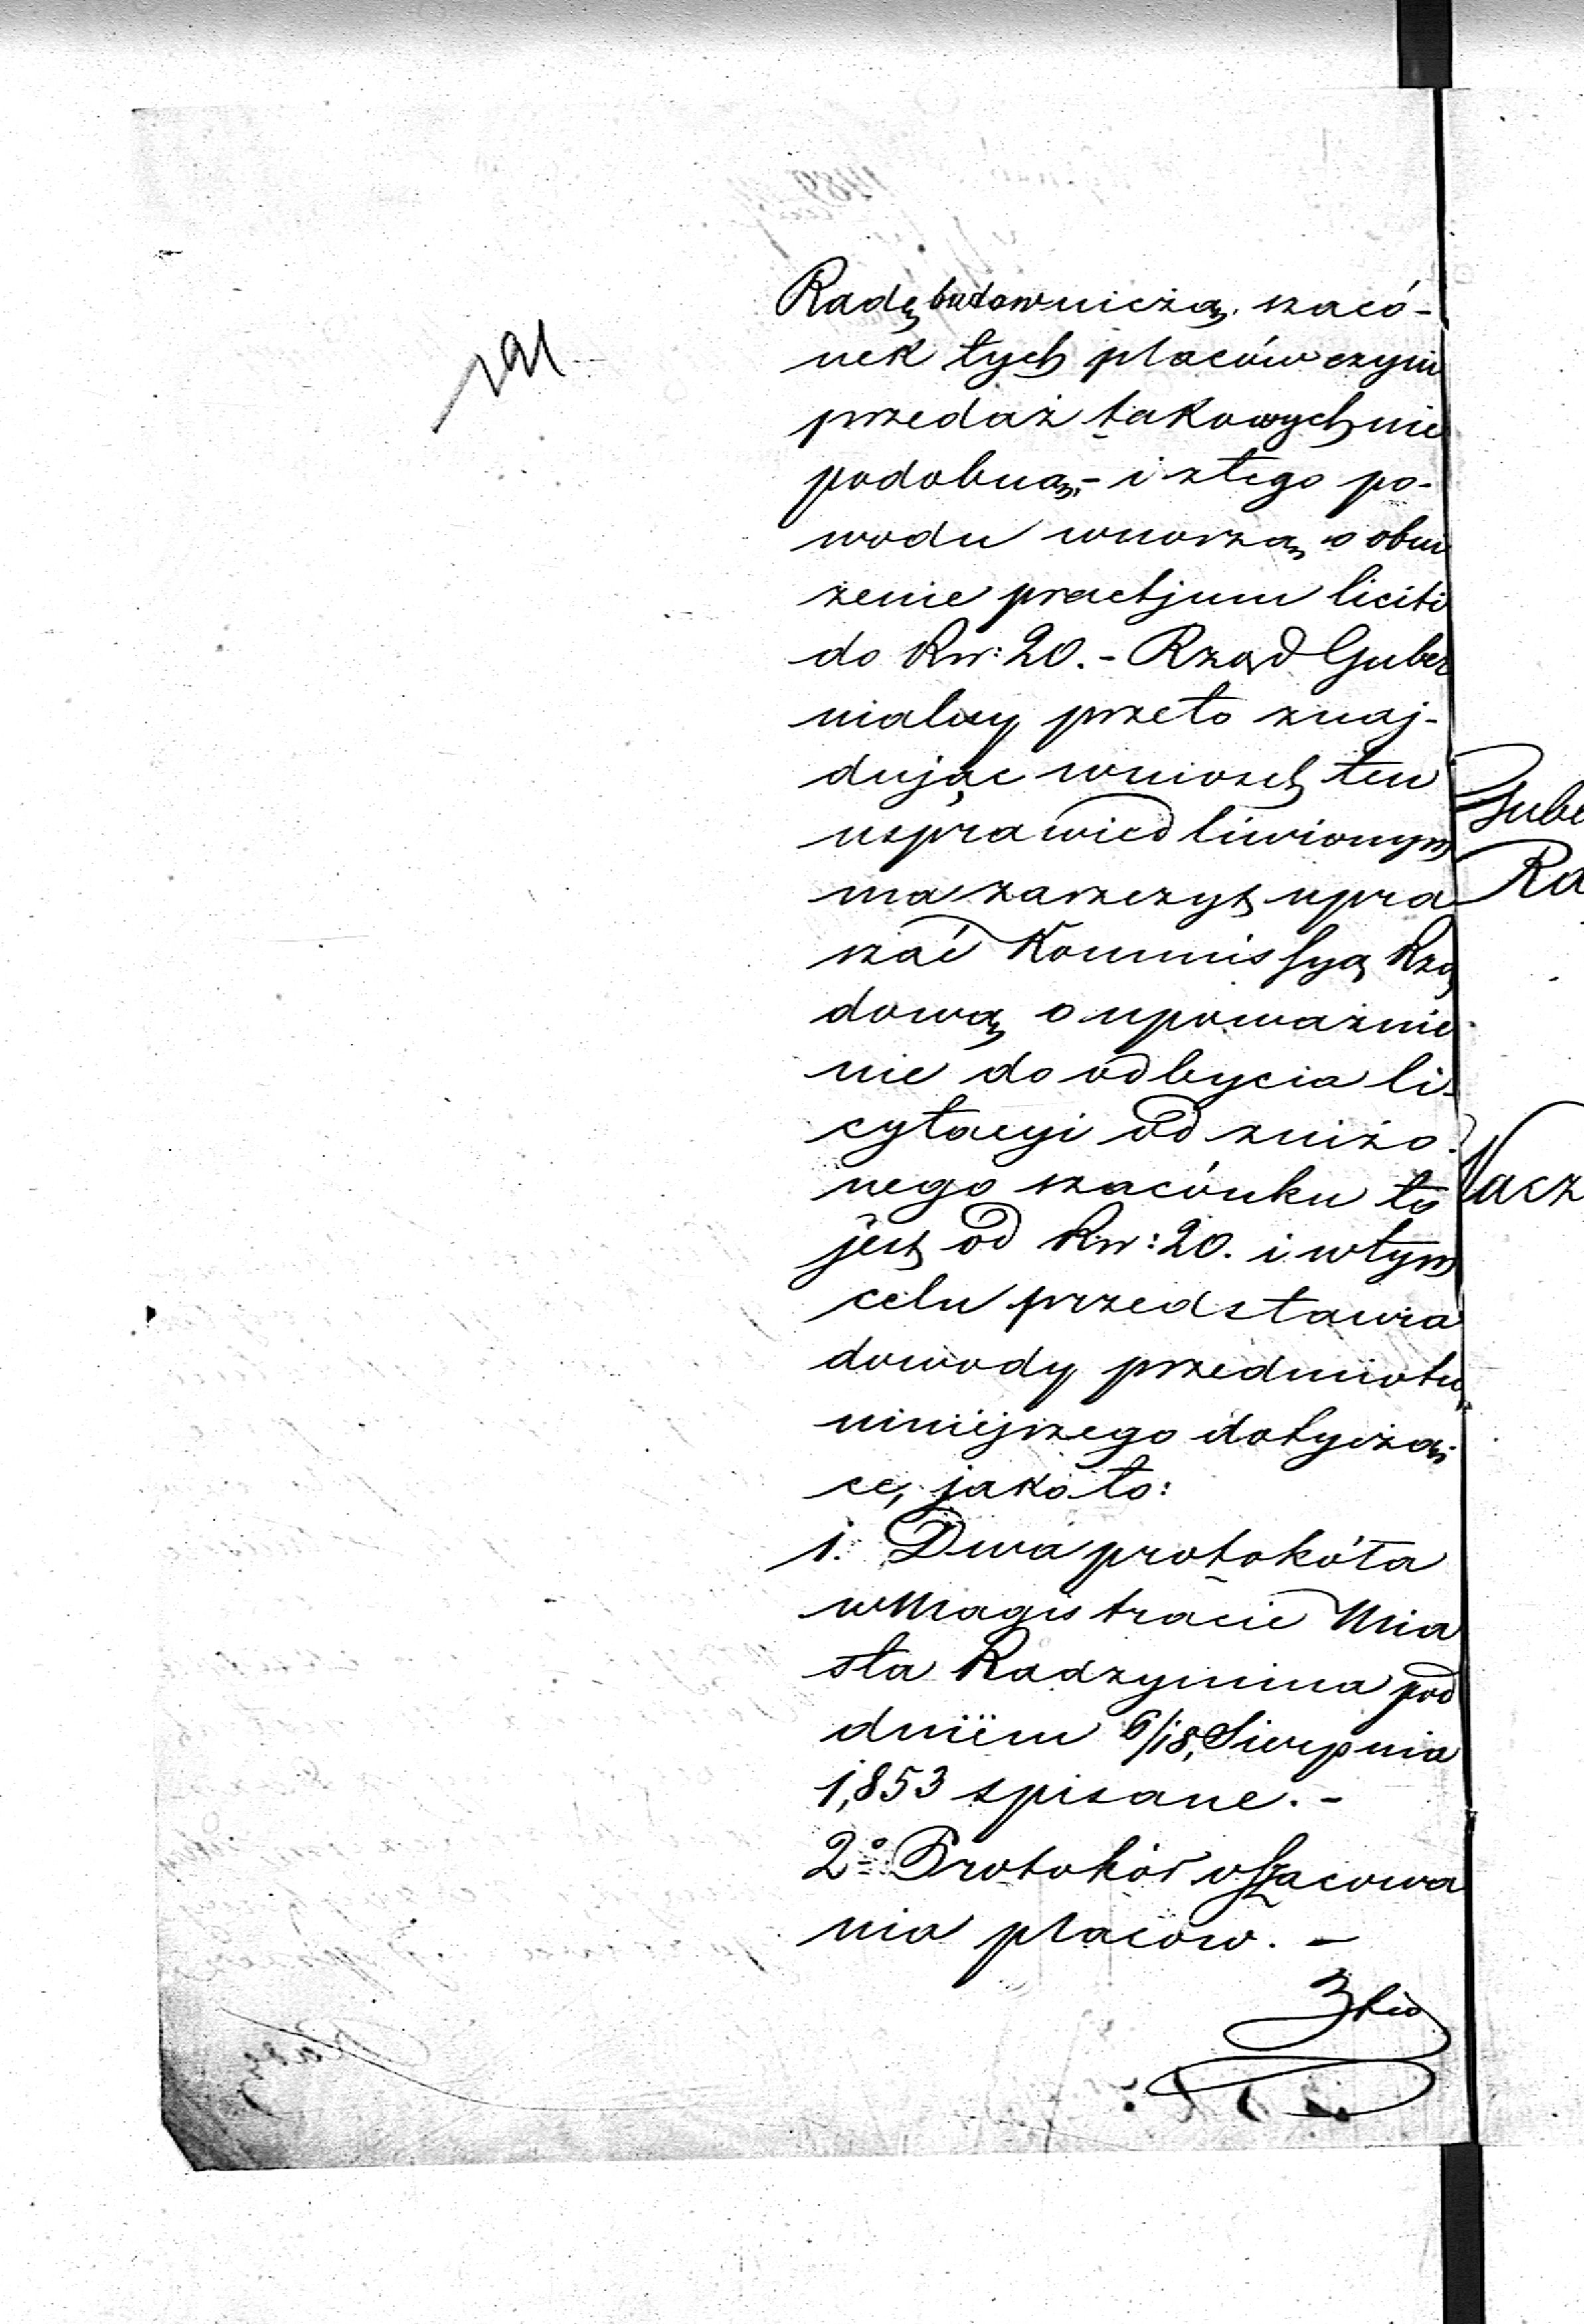 191
Radę budowniczą, szacó-
nek tych placów czyni
przedaż takowych nie
podobną,- i z tego po-
wodu wnoszą o obni
żenie praetjum liciti
do Rsr: 20.- Rząd Guber
nialny przeto znaj-
dując wniosek ten
usprawiedliwionym
ma zaszczyt upra
szać Kommissyą Rzą
dową o upoważnie-
nie do odbycia li-
cytacyi od zniżo-
nego szacónku to
jest od Rsr: 20. i w tym
celu przedstawia
dowody przedmiotu
niniejszego dotyczą-
ce, jako to:
1. Dwa protokóła
w Magistracie Mia
sta Radzymina pod
dniem 6/18, Sierpnia
1,853 spisane.-
2o Protokół oszacowa
nia placów.-
Gube
Ra
Nacz